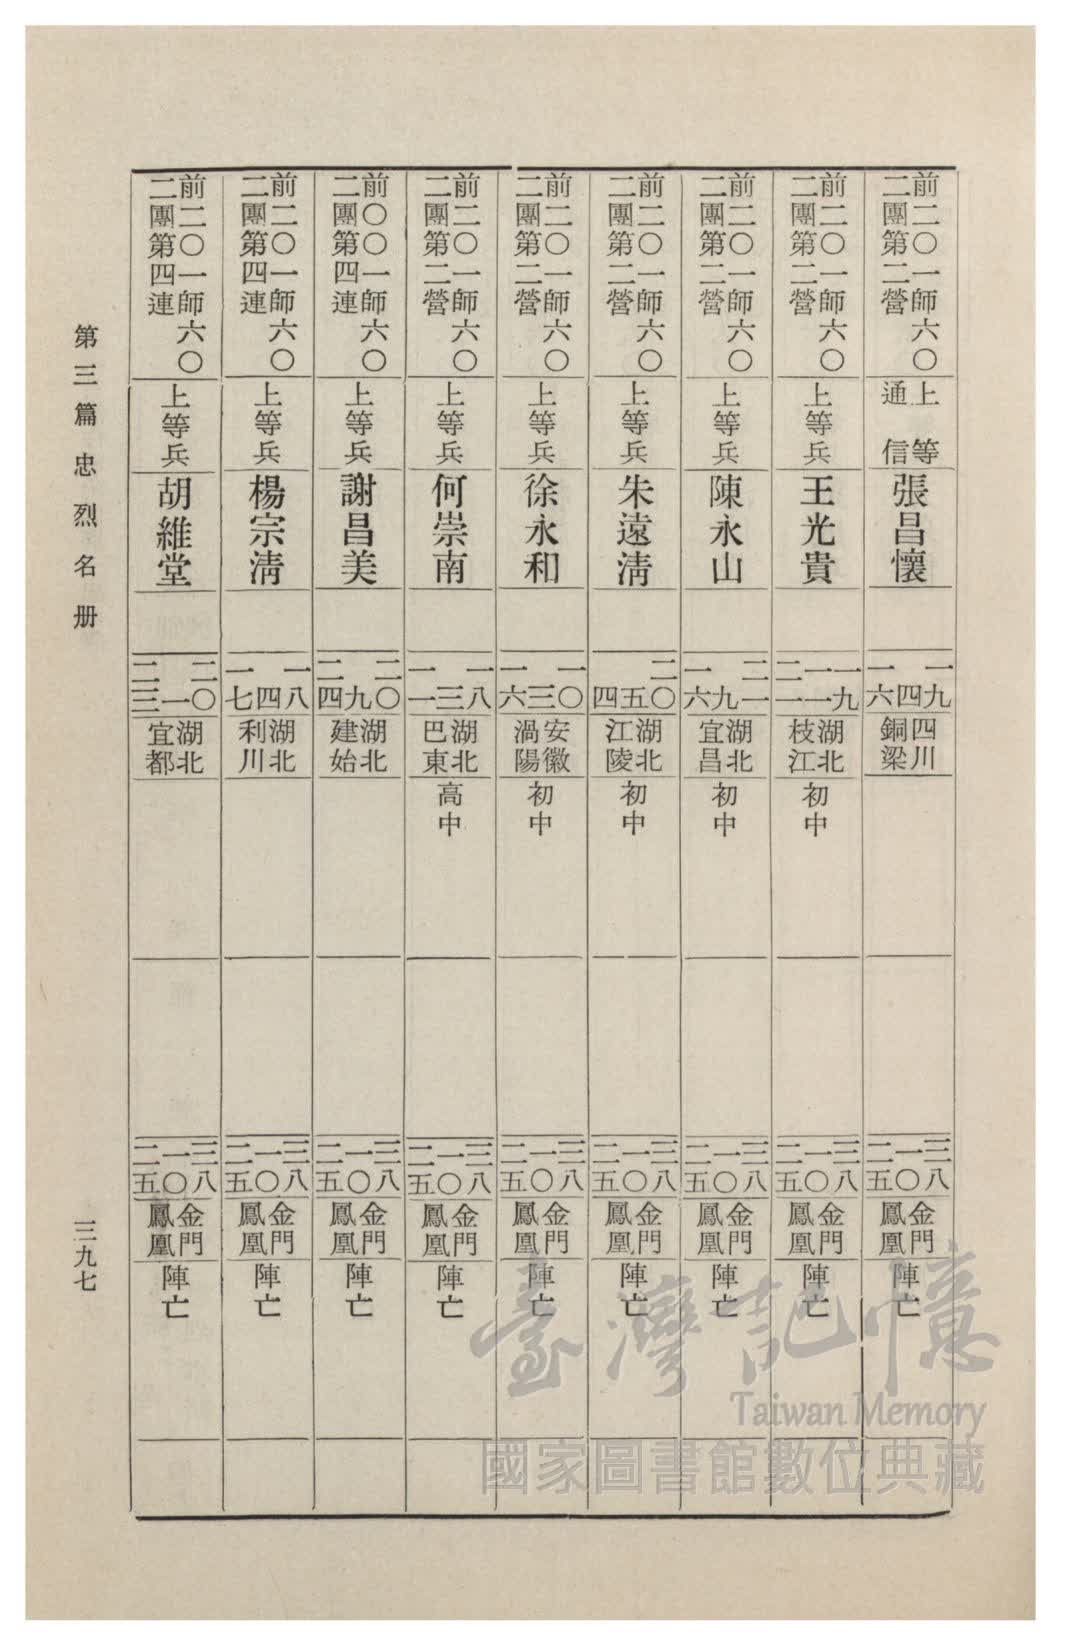 前二〇一師六〇
二團第二營
上等
通信
張昌懷
一九
四
一六
四川
銅梁
三八
一〇
二五
金門
鳳凰
陣亡
前二〇一師六〇
二團第二營
上等兵
王光貴
一九
一一
二一
湖北
枝江
初中
三八
一〇
二五
金門
鳳凰
陣亡
前二〇一師六〇
二團第二營
上等兵
陳永山
二一
九
一六
湖北
宜昌
初中
三八
一〇
二五
金門
鳳凰
陣亡
前二〇一師六〇
二團第二營
上等兵
朱遠淸
二〇
五
四
湖北
江陵
初中
三八
一〇
二五
金門
鳳凰
陣亡
前二〇一師六〇
二團第二營
上等兵
徐永和
一〇
三
一六
安徽
渦陽
初中
三八
一〇
二五
金門
鳳凰
陣亡
前二〇一師六〇
二團第二營
上等兵
何崇南
一八
三
一一
湖北
巴東
高中
三八
一〇
二五
金門
鳳凰
陣亡
前〇〇一師六〇
二團第四連
上等兵
謝昌美
二〇
九
二四
湖北
建始
三八
一〇
二五
金門
鳳凰
陣亡
前二〇一師六〇
二團第四連
上等兵
楊宗淸
一八
四
一七
湖北
利川
三八
一〇
二五
金門
鳳凰
陣亡
前二〇一師六〇
二團第四連
上等兵
胡維堂
二〇
一
二三
湖北
宜都
三八
一〇
二五
金門
鳳凰
陣亡
第三篇 忠烈名册
三九七
臺灣記憶
Taiwan Memory
國家圖書館數位典藏